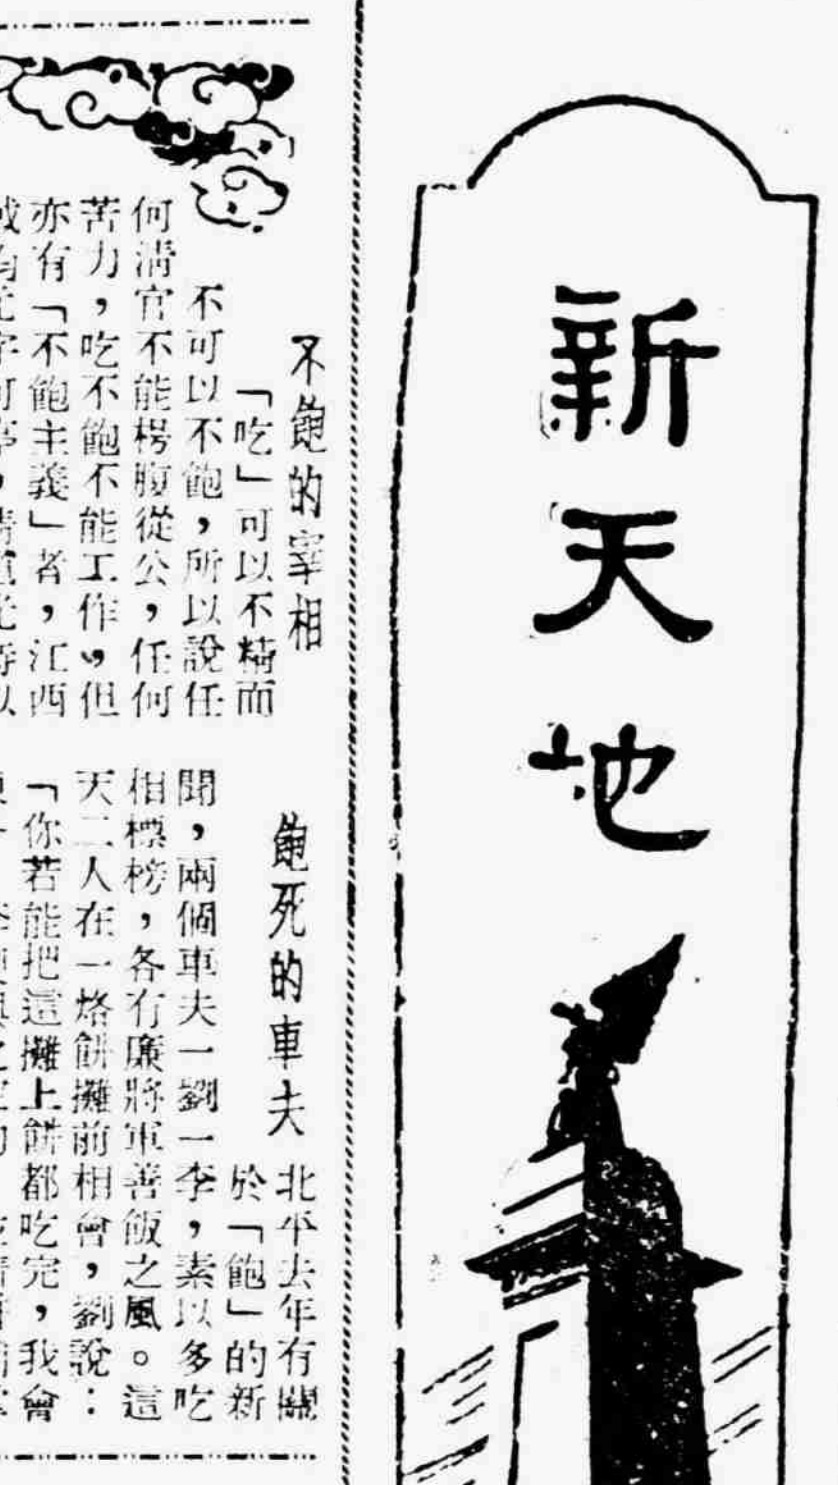 新天地
不飽的宰相
「吃」可以不精而
不可以不飽，所以說任
何淸官不能枵腹從公，任何
苦力，吃不飽不能工作，但
亦有「不飽主義」者，江西
飽死的車夫
北平去年有關
於「飽」的新
聞，兩個車夫一劉一李，素以多吃
相標榜，各有廉將軍善飯之風。這
天二人在一烙餅攤前相會，劉說：
「你若能把這攤上餅都吃完，我會